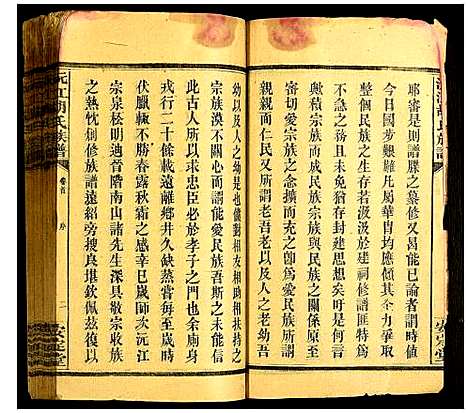 耶審是則譜牒之纂修又烏能已論者謂時值
今日國步艱難凡吾胄均應傾其全力以爲
整個民族之生存若汲汲於建祠修譜匪特爲
不急之務且尚存封建思想矣吁是何言
與積宗族而成民族宗族與民族之關係原
審切愛宗族之念擴而充之卽爲愛民族所謂
親親而仁民又所謂老吾老以及人之老幼吾
幼以及人之幼是也儻對相友相助相扶持之
宗族漠不關心而謂能愛民族吾斯之未能信
此古人所以求忠臣必於孝子之門也余廁身
戎行二十餘載遠離鄉井久缺蒸嘗每至歲時
伏臘輒不勝春露秋霜之感辛巳歲師次沅江
宗泉松明迪晉階南山諸先生深具敬宗收族
之熱忱創修族譜遠紹旁搜良堪欽佩茲復以
沅江胡氏族譜
卷首
序
二
安定堂